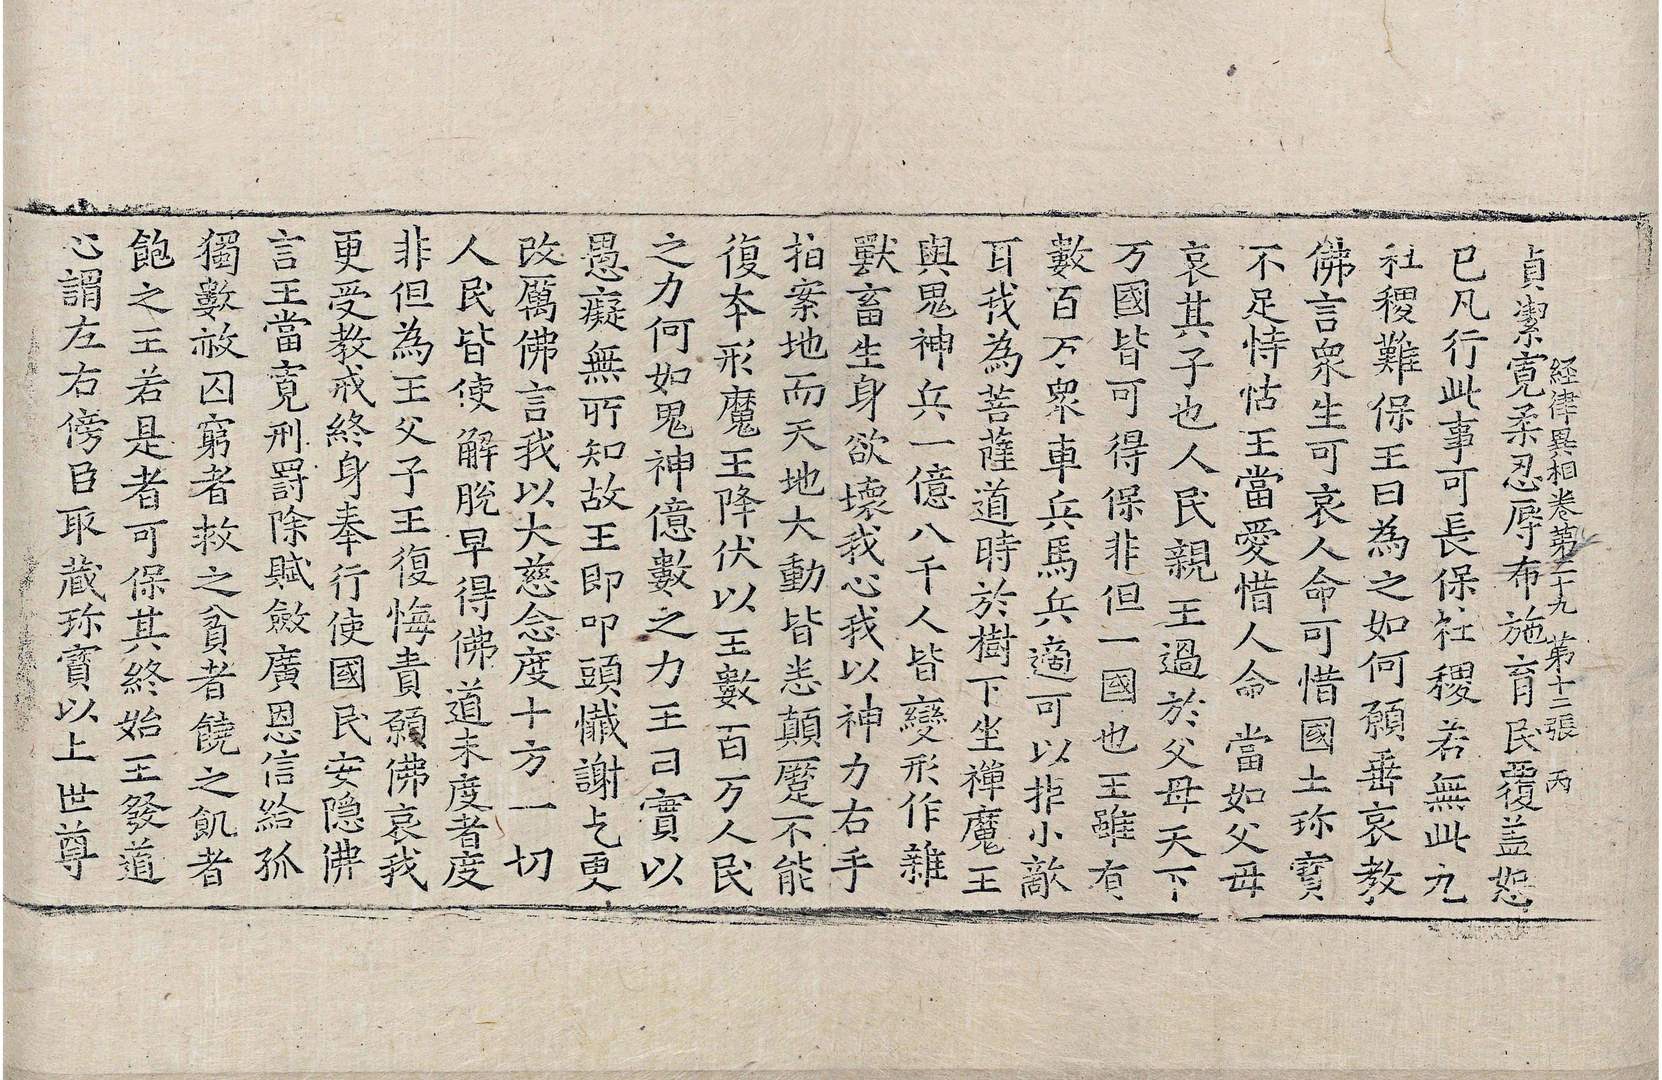 貞潔寬柔忍辱布施育民覆盖恕
経律異相卷第二十九 第十二張 丙
已凡行此事可長保社稷若無此九
社稷難保王曰為之如何願垂哀教
佛言衆生可哀人命可惜國土珎寶
不足恃怙王當愛惜人命當如父母
哀其子也人民親王過於父母天下
万國皆可得保非但一國也王雖有
數百万衆車兵馬兵適可以拒小敵
耳我為菩薩道時於樹下坐禪魔王
與鬼神兵一億八千人皆變形作雜
獸畜生身欲壞我心我以神力右手
拍案地而天地大動皆恙顛蹷不能
復夲形魔王降伏以王數百万人民
之力何如鬼神億數之力王曰實以
愚癡無所知故王即叩頭懺謝乞更
改厲佛言我以大慈念度十方一切
人民皆使解脫早得佛道未度者度
非但為王父子王復悔責願佛哀我
更受教戒終身奉行使國民安隐佛
言王當寬刑罸除賦斂廣恩信給孤
獨數赦囚窮者救之貧者饒之飢者
飽之王若是者可保其終始王發道
心謂左右傍臣取藏珎寶以上世尊